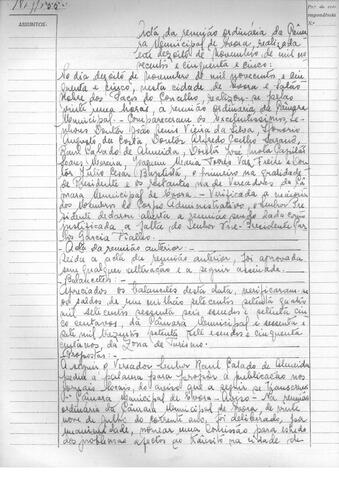 ASSUNTOS:
Acta da reunião ordinária da Câma
ra Municipal de Évora, realizada
em dezoito de Novembro de mil no
vecentos e cinquenta e cinco:
No dia dezoito de Novembro de mil novecentos e cin
quenta e cinco, nesta cidade de Évora e Salão
Nobre dos Paços do Concelho, realizou-se pelas
vinte uma horas, a reunião ordinária da Câmara
Municipal.- Compareceram os Excelentíssimos, Se-
nhores Doutor João Luís Vieira da Silva,
Augusto da Costa, Doutor Alfredo Coelho
Raul Calado de Almeida, José
Joaquim Maria Torres Vaz Freire e Dou
tor Júlio César Baptista, o primeiro na qualidade
de Presidente e os restantes na de Vereadores da Câ
mara Municipal de Évora.- Verificada a maioria
dos Membros do Corpo Administrativo, o Senhor Pre
sidente declarou aberta a reunião sendo dada como
justificada a falta do Senhor Vice-Presidente
Garcia Fialho.
Acta da reunião anterior:-
Lida a acta da reunião anterior, foi aprovada
sem qualquer alteração e a seguir assinada.
Balancetes:-
Apreciados os balancetes desta data, verificaram-se
os saldos de um milhão setecentos setenta quatro
mil setecentos sessenta seis escudos e setenta cin
co centavos, da Câmara Municipal e sessenta e
sete mil duzentos setenta três escudos e cinquenta
centavos, da Zona de Turismo.
Propostas:-
A seguir o Vereador Senhor Raul Calado de Almeida
pediu a palavra para propôr a publicação nos
jornais locais, do aviso que a seguir se transcreve:
"Câmara Municipal de Évora - Aviso - Na reunião
ordinária da Câmara Municipal de Évora, de vinte
nove de Julho do corrente ano, foi deliberado, por
unanimidade, nomear uma Comissão para estudo
dos problemas afectos ao trânsito na cidade de